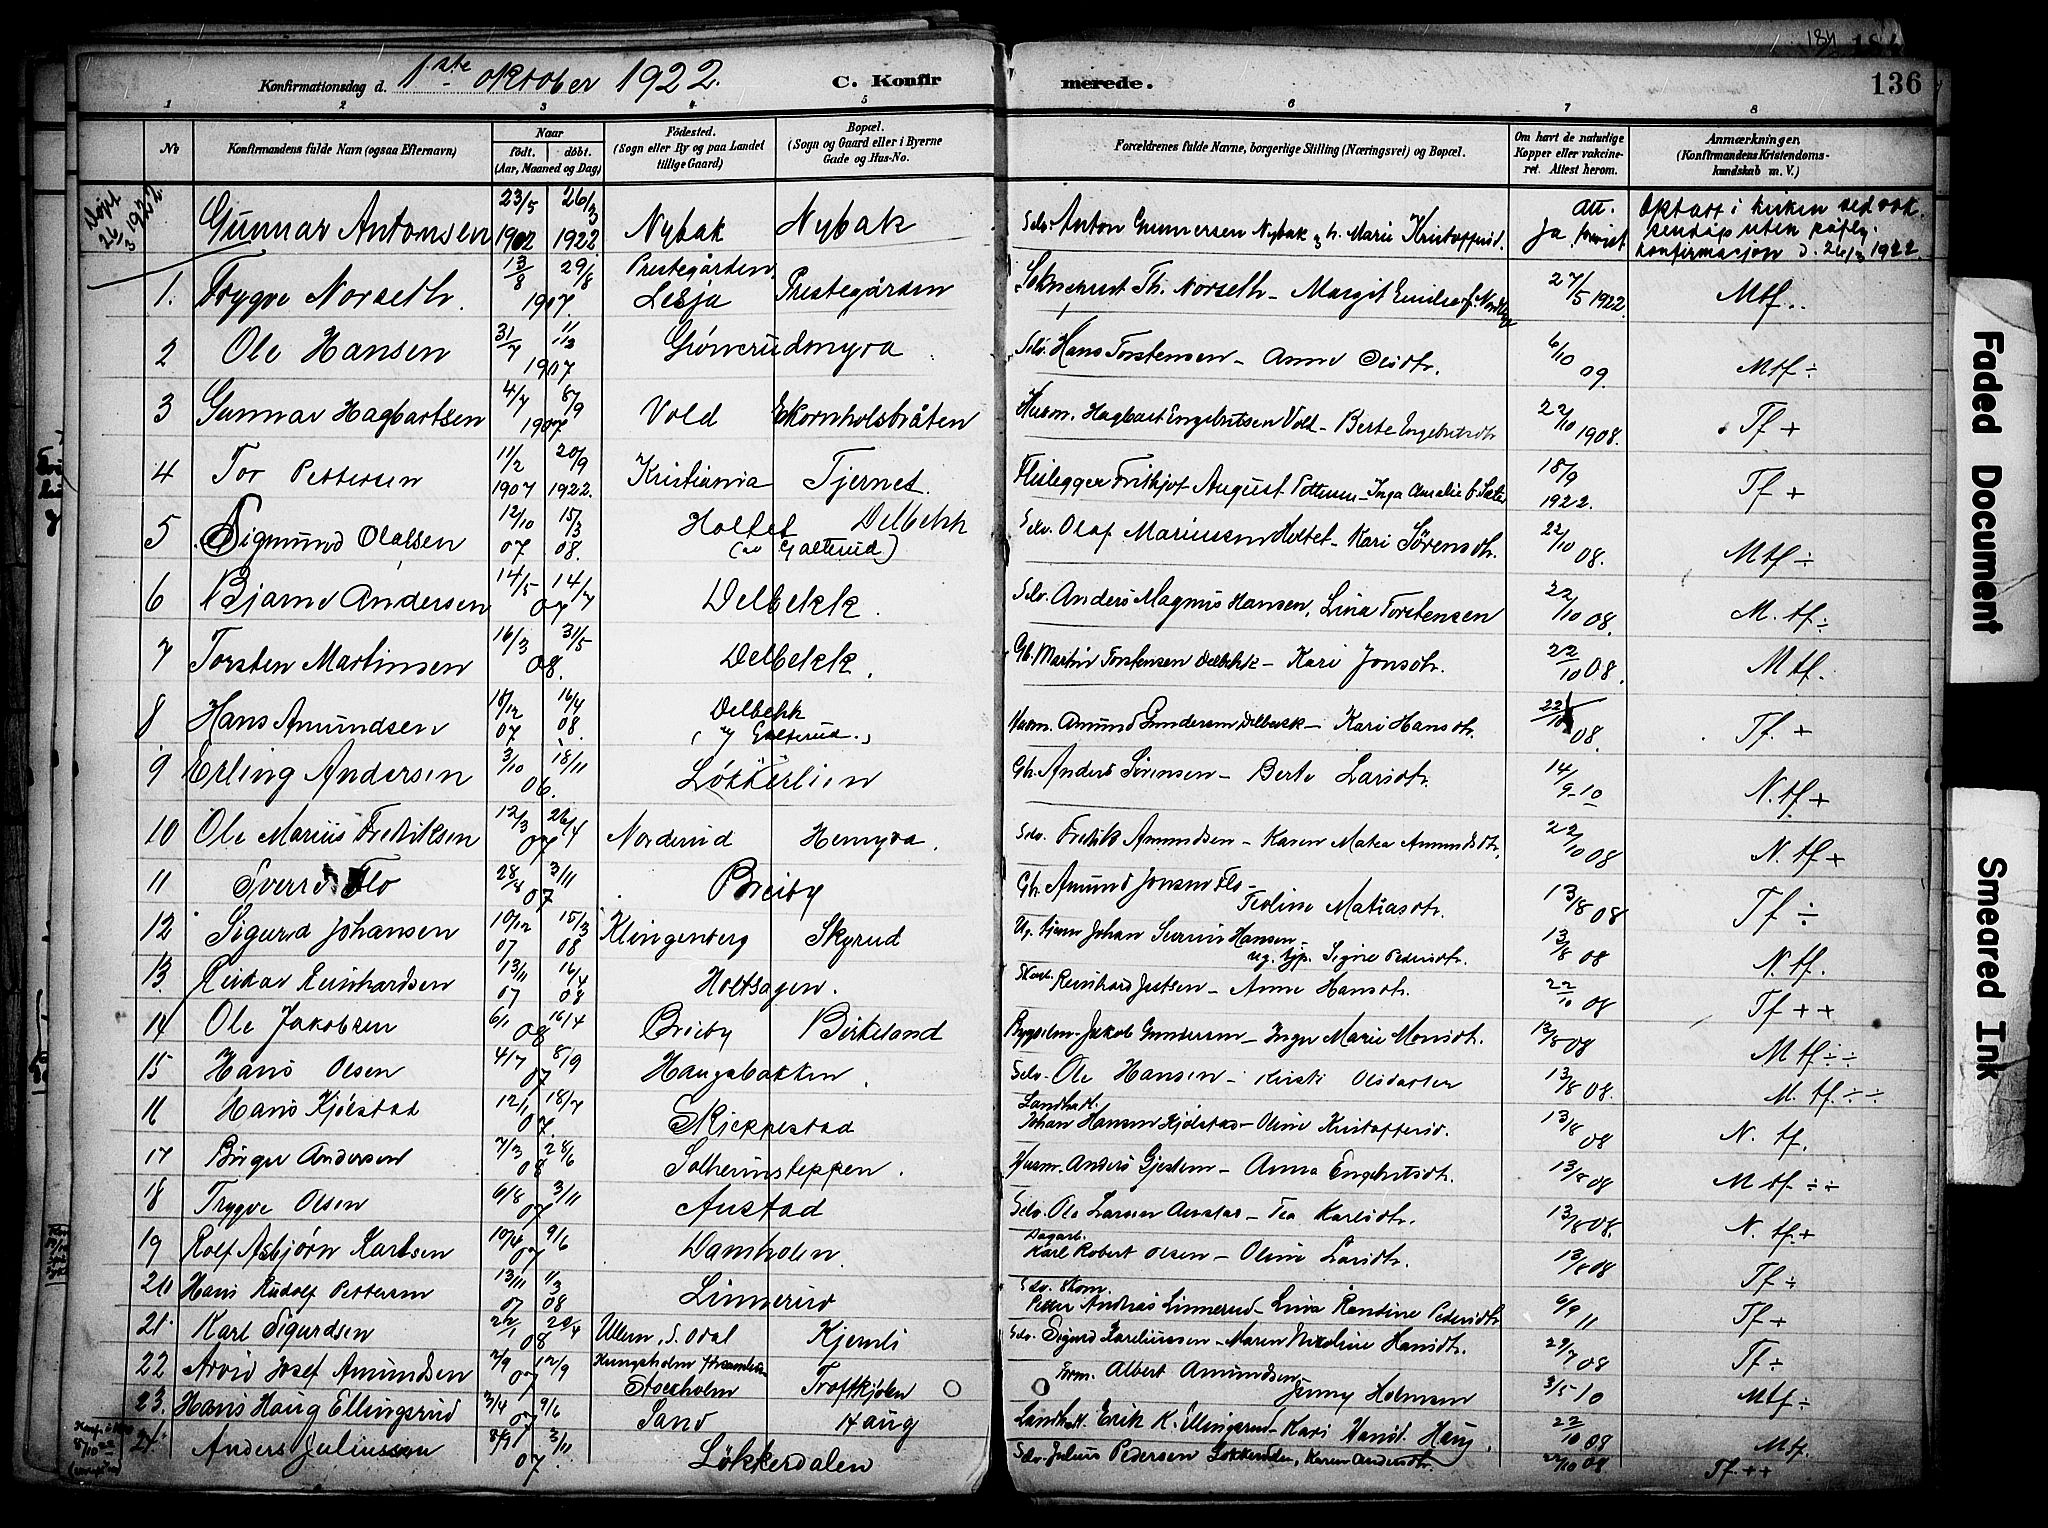 184
136
Konfirmationsdag d. 1ste oktober 1922. C. Konfir merede.
1 2 3 4 5 6 7 8
No Konfirmandens fulde Navn (ogsaa Efternavn) Naar født. døbt. (Aar, Maaned og Dag) Födested. (Sogn eller By og paa Landet tillige Gaard) Bopæl. (Sogn og Gaard eller i Byerne Gade og Hus-No. Forældrenes fulde Navne, borgerlige Stilling (Næringsvei) og Bopæl. Om havt de naturlige Kopper eller vakcineret. Attest herom. Anmærkninger. (Konfirmandens Kristendomskundskab m. V.)
Döpt 26/3 1922. Gunnar Antonsen 23/5 1902 26/3 1922 Nybak Nybak Selv. Anton Gunnersen Nybak og h. Marie Kristoffersd. att. Ja Optatt i kirken ved uten konfirmasjon d. 26/3 1922.
1. Trygve Norseth. 13/8 29/8 1907. Prestegården Lesja Prestegården Sokneprest Th. Norseth - Margit 27/5 1922. Mtf..
2 Ole Hansen 31/7 1907 Grönerudmyra Selv. Hans Torstensen - Anne Olsdtr. 6/10 09. Mtf ÷
3 Gunnar Hagbartsen 4/7 8/9 1907 Vold Ekornholsbråten Husm. Hagbart Engebretsen Vold - Berte Engebretsdtr 22/10 1908. Tf +
4 Tor Pettersen 11/2 1907 20/9 1922. Kristiania Tjernet. Fritkjof August Pettersen - Inga Amalie f. Sæter 18/9 1922. Tf +
5 Sigmund Olafsen 12/10 07 15/3 08. Holtet (av Galterud) Delbekk Selv. Olaf Mariussen Holtet - Kari Sörensdtr. 22/10 08. Mtf ÷
6 Bjarne Andersen 14/5 14/7 07 Delbekk. Selv. Anders Magnus Hansen, Lina Torstensen 22/10 08. M. tf ÷
7 Torsten Martinsen 16/3 31/5 08. Delbekk. Gb. Martin Torstensen Delbekk - Kari Jonsdtr. 22/10 08. Mtf.
8 Hans Amundsen 18/12 07 16/4 08. Delbekk (av Galterud.) Husm. Amund Gundersen Delbekk - Kari Hansdtr. 22/10 08. Tf +
9 Erling Andersen 3/10 18/11 06. Lökkerlien Gb. Anders Sörensen - Berte Larsdtr. 14/9 - 10 N. tf +
10 Ole Marius Fredriksen 12/3 26/4 07 Norderud Hemyra. Selv. Fredrik Amundsen - Karen Matea Amundsdtr. 22/10 08 N. tf +
11 Sverre Flo 28/8 3/11 07 Breiby Gb. Amund Jonsen Flo - Teoline Matiasdtr. 13/8 08 Tf ÷
12 Sigurd Johansen 10/12 07 15/3 08 Klingenberg Skyrud Ug. Johan Severin Hansen - ug. tjp. Signe Pedersdtr. 13/8 08 N. tf.
13. Reidar Reinhardsen 13/11 07 16/4 08 Holtsagen. Reinhard Justsen - Anne Hansdtr. 22/10 08 Tf + +
14 Ole Jakobsen 6/1 16/4 08 Breiby Birkeland Jakob Gundersen - Inger Marie Monsdtr. 13/8 08 Mtf ÷ ÷
15 Hans Olsen 4/7 8/9 07 Haugsbakken. Selv. Ole Hansen - Kirsti Olsdatter 13/8 08. M. tf. ÷ ÷
16 Hans Kjölstad 12/1 18/7 07. Skjeppestad Landh. Johan Hansen Kjölstad - Oline Kristoffersd. 13/8 08 N. tf.
17 Birger Andersen 7/3 28/6 08 Solheimsteppen. Husm. Anders Gjestem - Anna Engebretsdtr. 13/8 08 Mtf ÷ ÷
18 Trygve Olsen 6/8 3/11 07 Austad Selv. Ole Larsen Austad - Tea Karlsdtr. 13/8 08. N. tf +
19 Rolf Asbjørn Karlsen 10/4 9/6 07 Damholen. Dagarb. Karl Robert Olsen - Oline Larsdtr. 13/8 08 Tf ÷
20 Hans Rudolf Pettersen 13/11 07 1/3 08 Linnerud Selv. Skom. Peder Andreas Linnerud - Lina Randine Pedersdtr 6/9 11 Tf +
21. Karl Sigurdsen 22/1 20/4 08 Ullern, S. Odal Kjernli Selv. Sigurd Kareliussen - Maren Nikoline Hansdtr. 29/7 08 Tf ÷
22 Arvid Josef Amundsen 2/9 12/9 07 Kungsholm Stockholm Troftkjölen Albert Amundsen - Jenny Holmsen 3/5 10 Mtf ÷
23. Hans Haug Ellingsrud 3/4 9/6 07 Sand Haug Landh. Erik K. Ellingsrud - Kari Hansd. Haug. 22/10 08 Mtf.
8/10 22 24. Anders Juliussen 8/9 3/11 07. Lökkerdalen Selv. Julius Pedersen Lökkerdalen, Karen Andersdtr. 22/10 08 Tf. + +
Faded Document
Smeared Ink